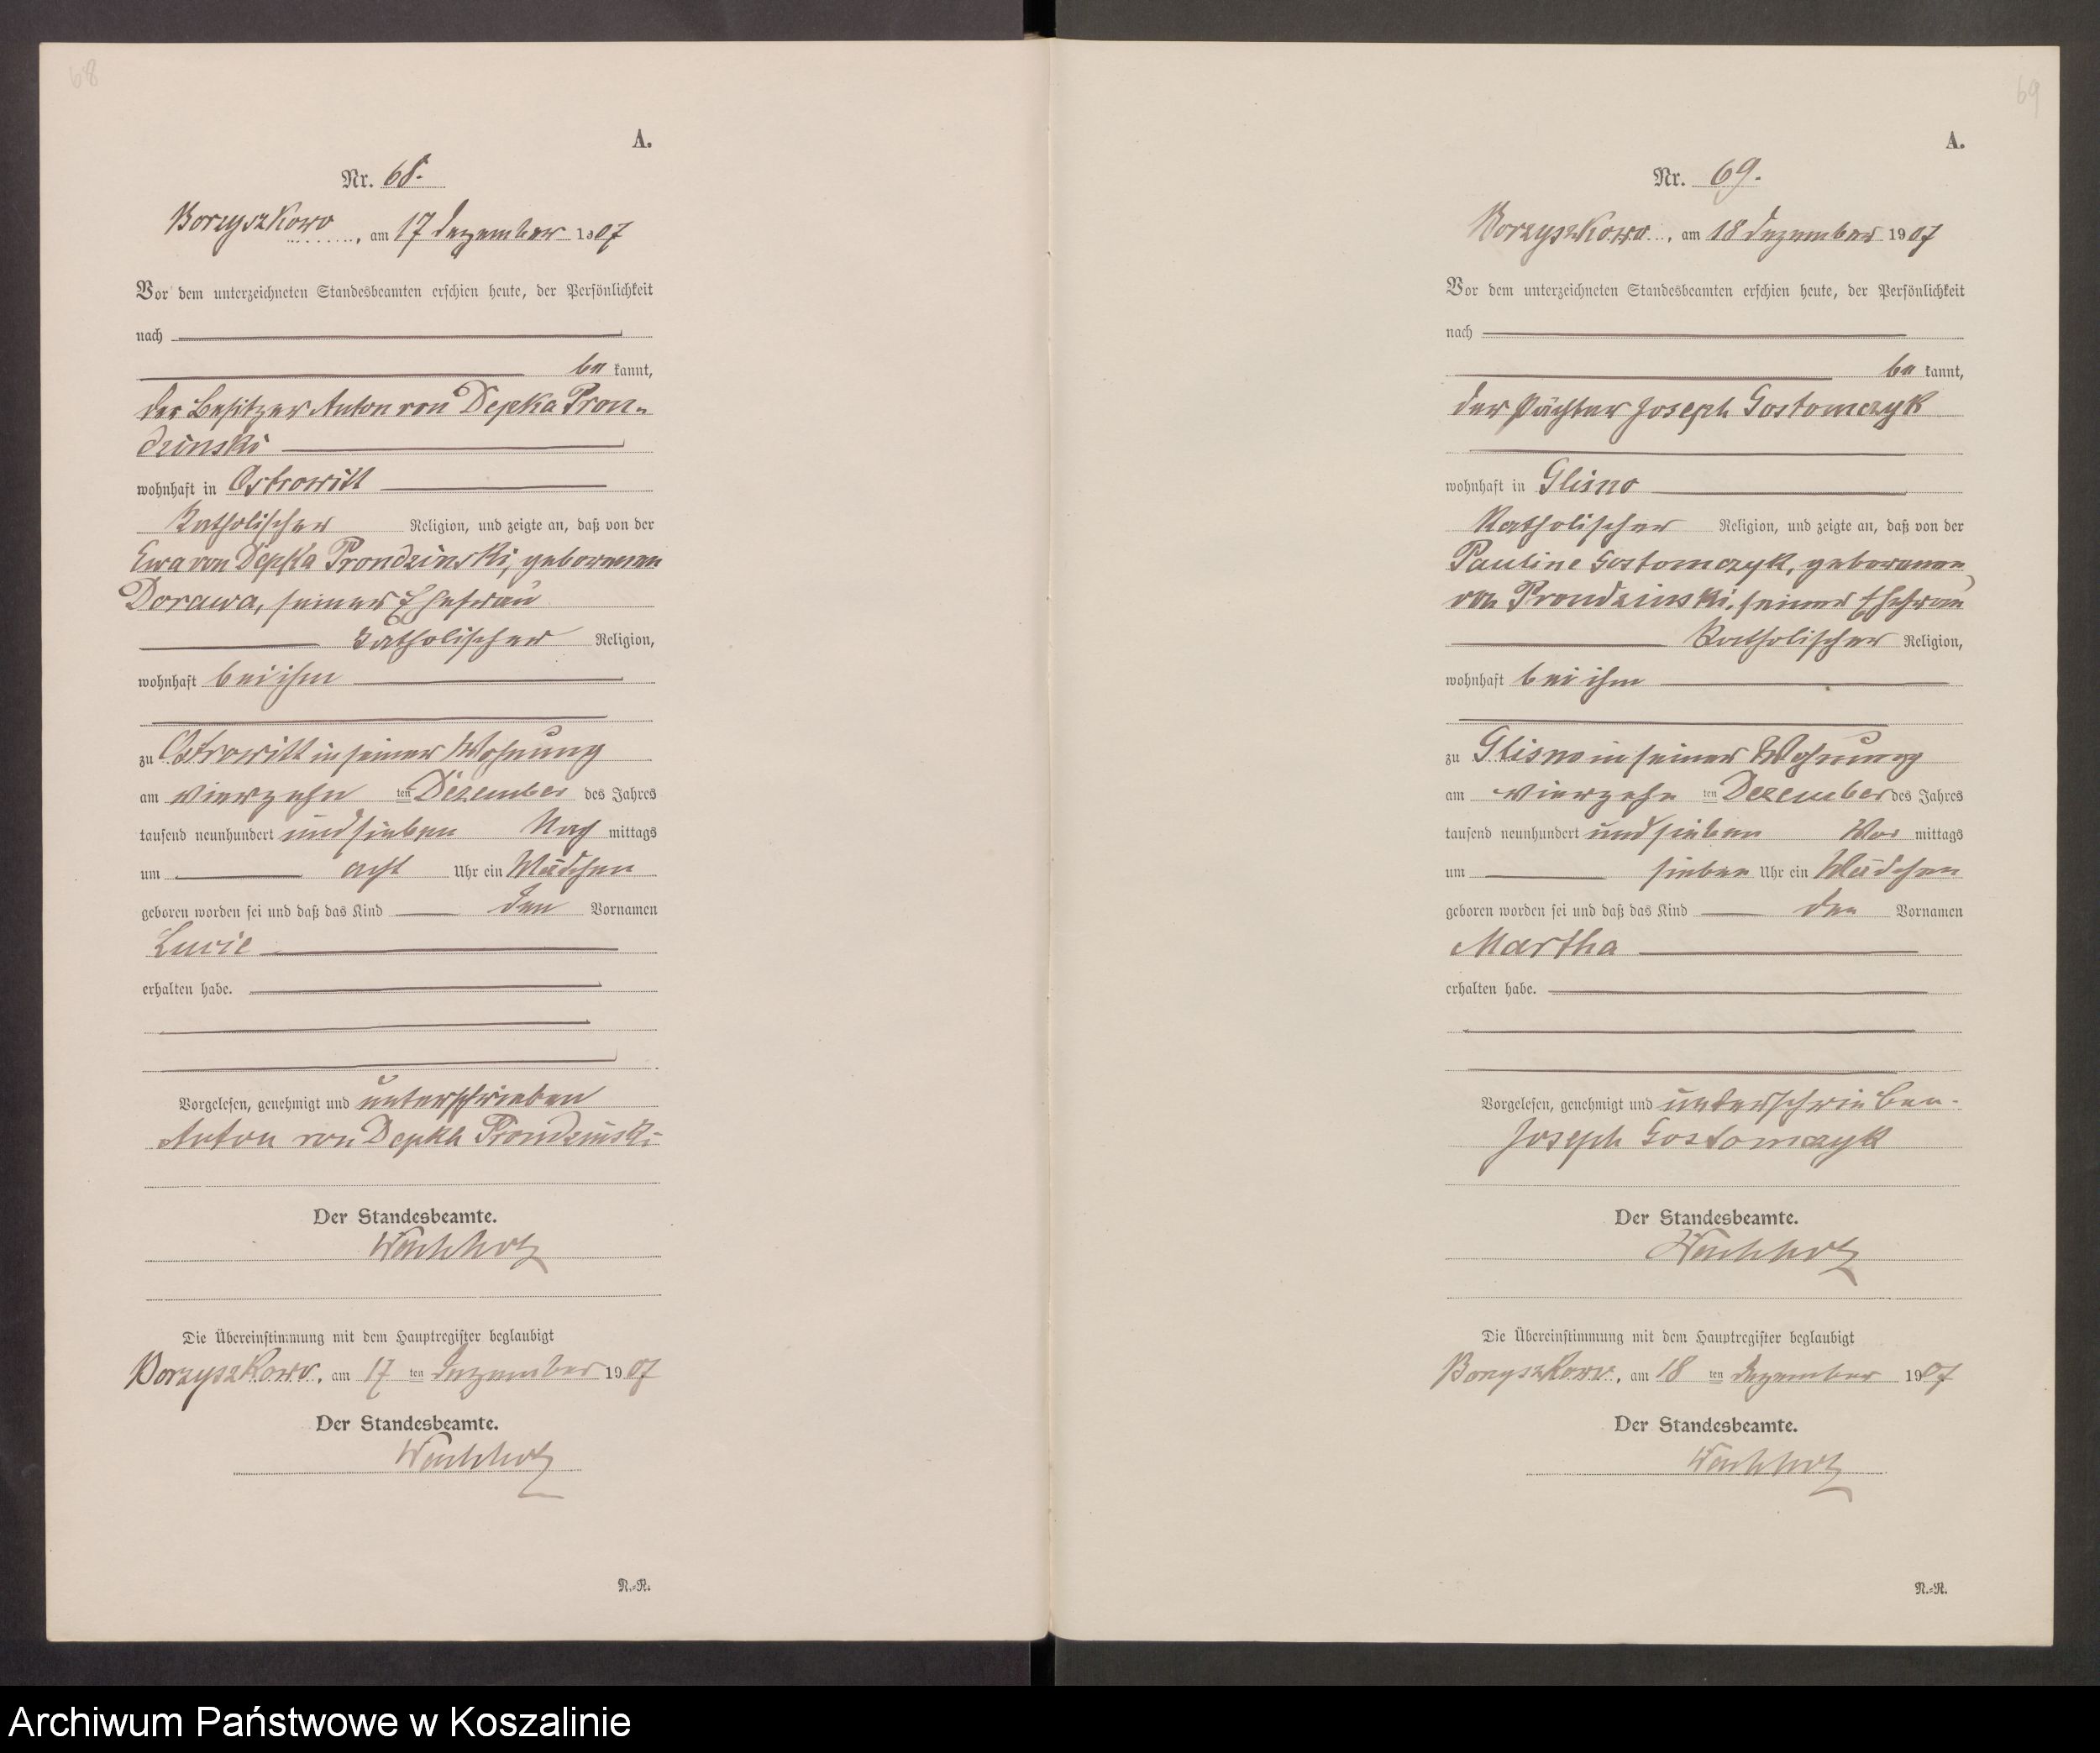 68
A.
Nr. 68.
Borzyszkowo, am 17 Dezember 1907
Vor dem unterzeichneten Standesbeamten erschien heute, der Persönlichkeit
nach
be kannt,
der Besitzer Anton von Depka Pron-
dzinski
wohnhaft in Ostrowitt
katholischer Religion, und zeigte an, daß von der
Ewa von Depka Prondzinski, geborenen
Dorawa, seiner Ehefrau
katholischer Religion,
wohnhaft bei ihm
zu Ostrowitt in seiner Wohnung
am vierzehn ten Dezember des Jahres
tausend neunhundert und sieben Nach mittags
um acht Uhr ein Mädchen
geboren worden sei und daß das Kind den Vornamen
Lucie
erhalten habe.
Vorgelesen, genehmigt und unterschrieben
Anton von Depka Prondzinski
Der Standesbeamte.
Wachholz
Die Übereinstimmung mit dem Hauptregister beglaubigt
Borzyszkowo, am 17 ten Dezember 1907
Der Standesbeamte.
Wachholz
N.=R.
69
A.
Nr. 69.
Borzyszkowo, am 18 Dezember 1907
Vor dem unterzeichneten Standesbeamten erschien heute, der Persönlichkeit
nach
be kannt,
der Pächter Joseph Gostomczyk
wohnhaft in Glisno
katholischer Religion, und zeigte an, daß von der
Pauline Gostomczyk, geborenen
von Prondzinski, seiner Ehefrau
katholischer Religion,
wohnhaft bei ihm
zu Glisno in seiner Wohnung
am vierzehn ten Dezember des Jahres
tausend neunhundert und sieben Vor mittags
um sieben Uhr ein Mädchen
geboren worden sei und daß das Kind den Vornamen
Martha
erhalten habe.
Vorgelesen, genehmigt und unterschrieben.
Joseph Gostomczyk
Der Standesbeamte.
Wachholz
Die Übereinstimmung mit dem Hauptregister beglaubigt
Borzyszkowo, am 18 ten Dezember 1907
Der Standesbeamte.
Wachholz
N.=R.
Archiwum Państwowe w Koszalinie